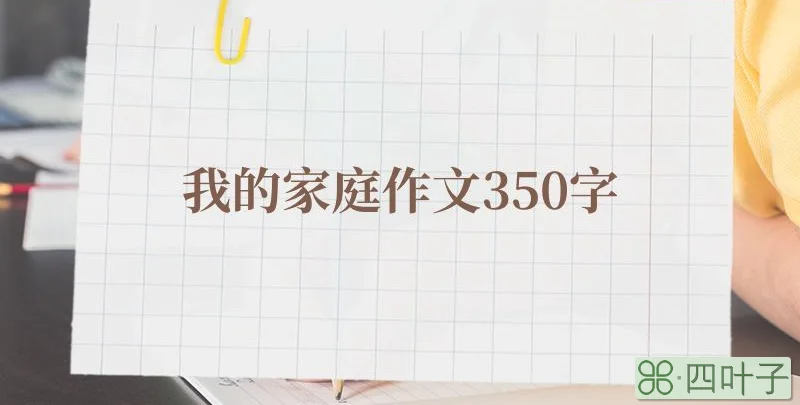 我的家庭作文350字
四叶子